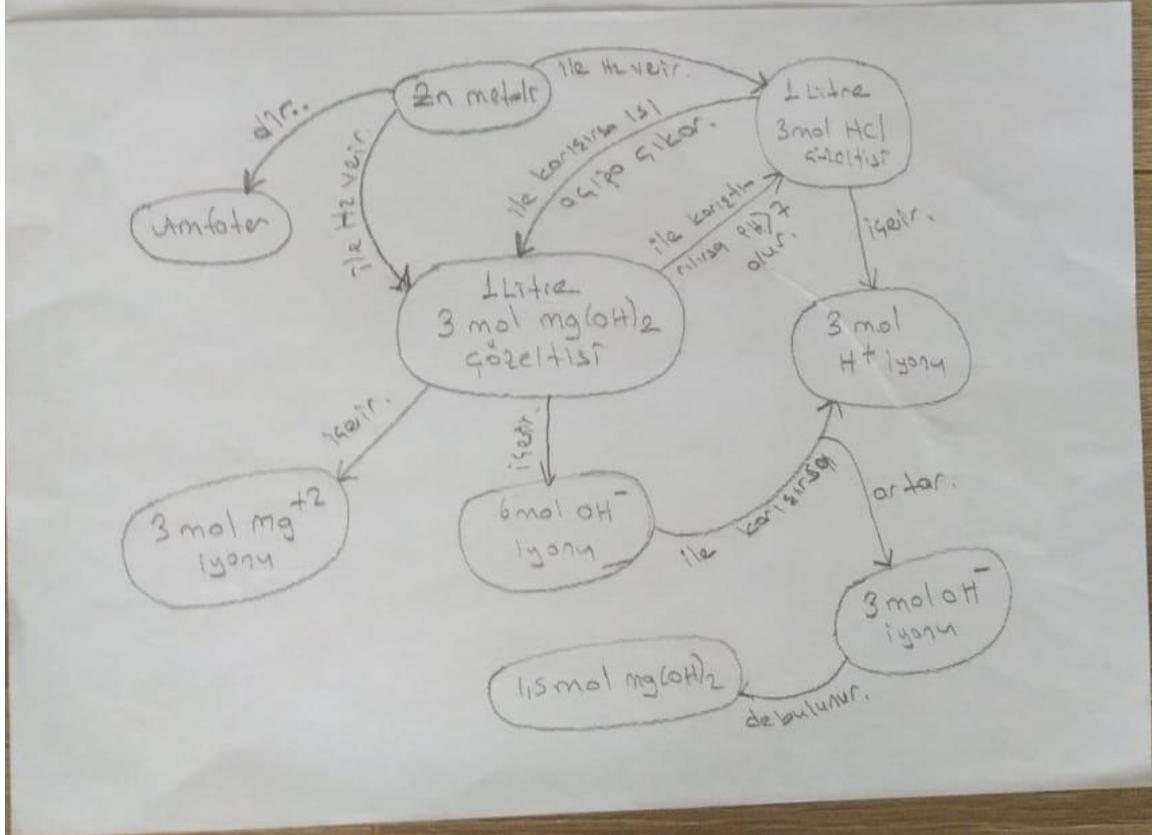 Zn metali
ile H2 verir.
dir..
ile H2 verir.
Amfoter
1 Litre
3mol HCl
çözeltisi
ile karışırsa ısı
açığa çıkar.
ile karıştı
rılırsa pH>7
olur.
içerir.
1 Litre
3 mol mg(OH)2
çözeltisi
3 mol
H+ iyonu
içerir.
içerir.
3 mol mg+2
iyonu
6mol OH-
iyonu
ile karışırsa
artar.
3 mol OH-
iyonu
1,5 mol mg(OH)2
de bulunur.